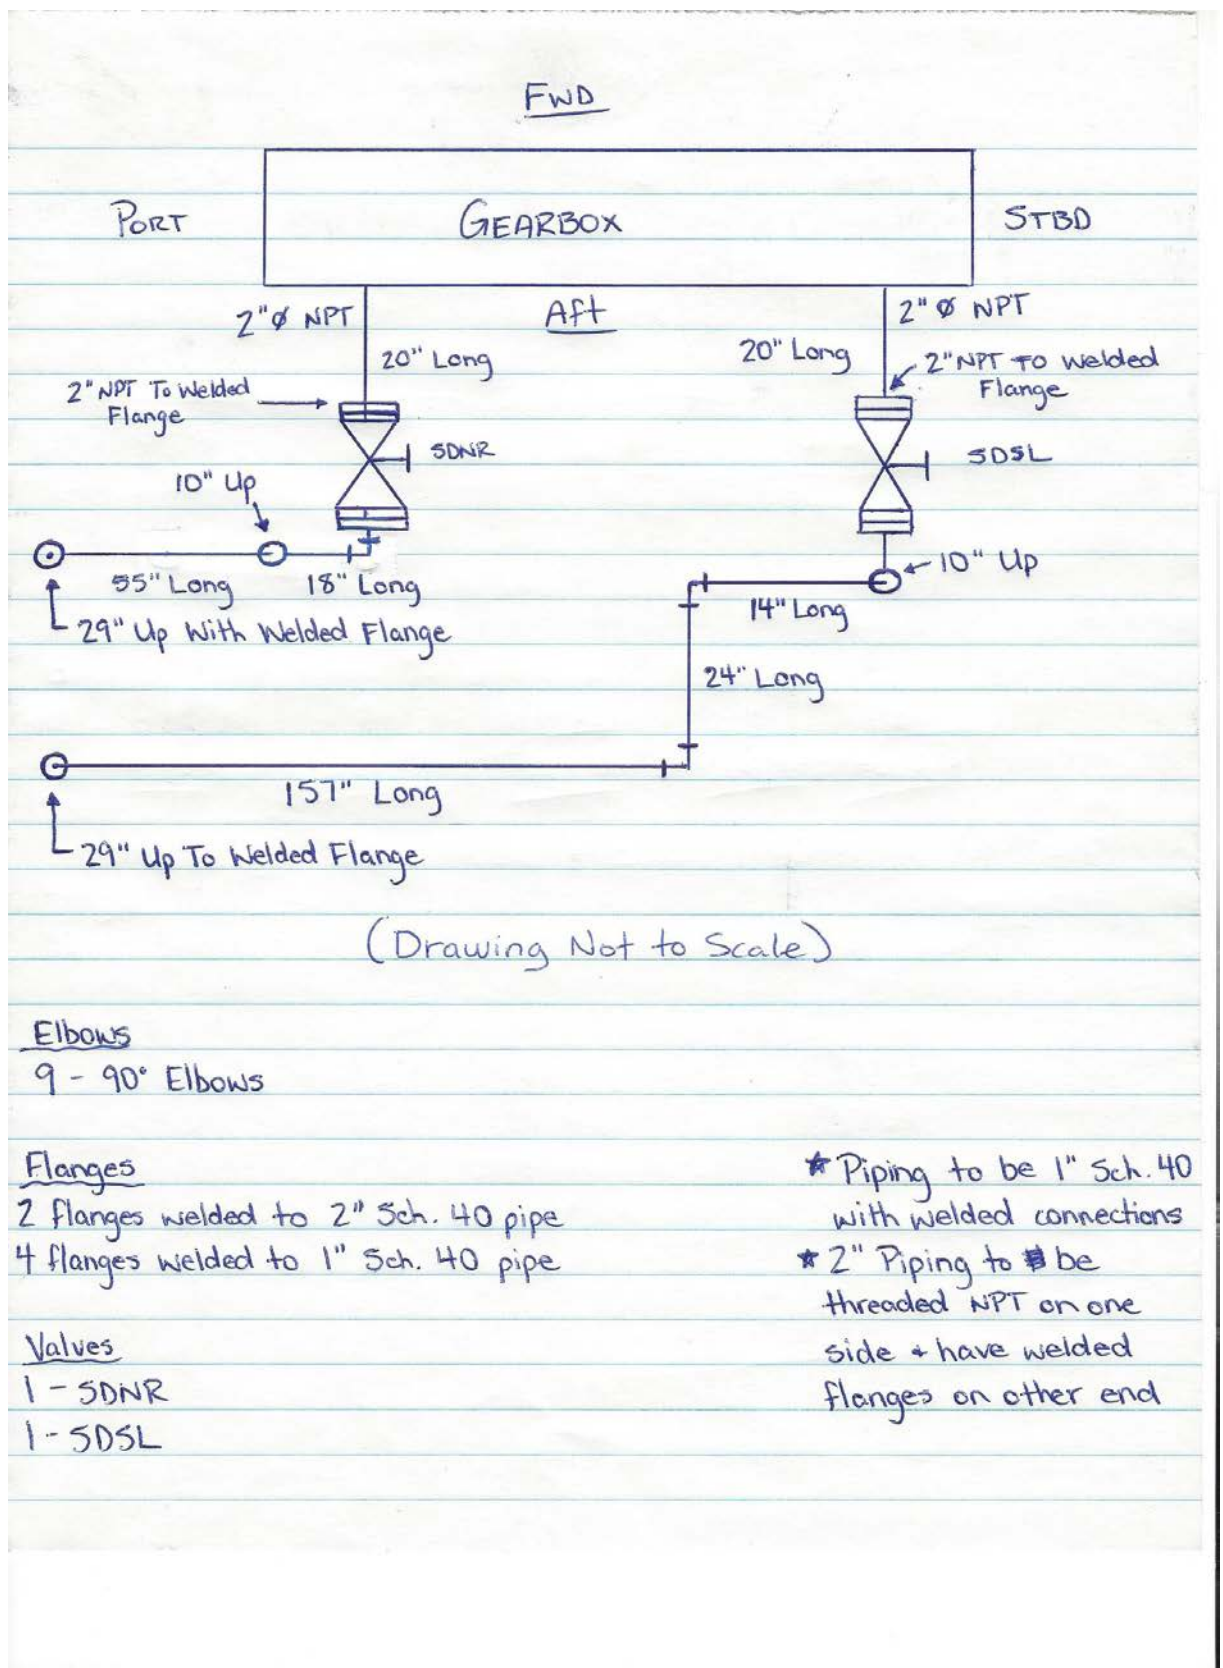 FWD
PORT
GEARBOX
STBD
2"Ø NPT
Aft
2" Ø NPT
20" Long
20" Long
2" NPT To Welded
Flange
2" NPT TO Welded
Flange
SDNR
SDSL
10" Up
10" Up
55" Long
18" Long
14" Long
29" Up With Welded Flange
24" Long
157" Long
29" Up To Welded Flange
(Drawing Not to Scale)
Elbows
9 - 90° Elbows
Flanges
2 flanges welded to 2" Sch. 40 pipe
4 flanges welded to 1" Sch. 40 pipe
Valves
1 - SDNR
1 - SDSL
* Piping to be 1" Sch. 40
with welded connections
* 2" Piping to be
threaded NPT on one
side + have welded
flanges on other end